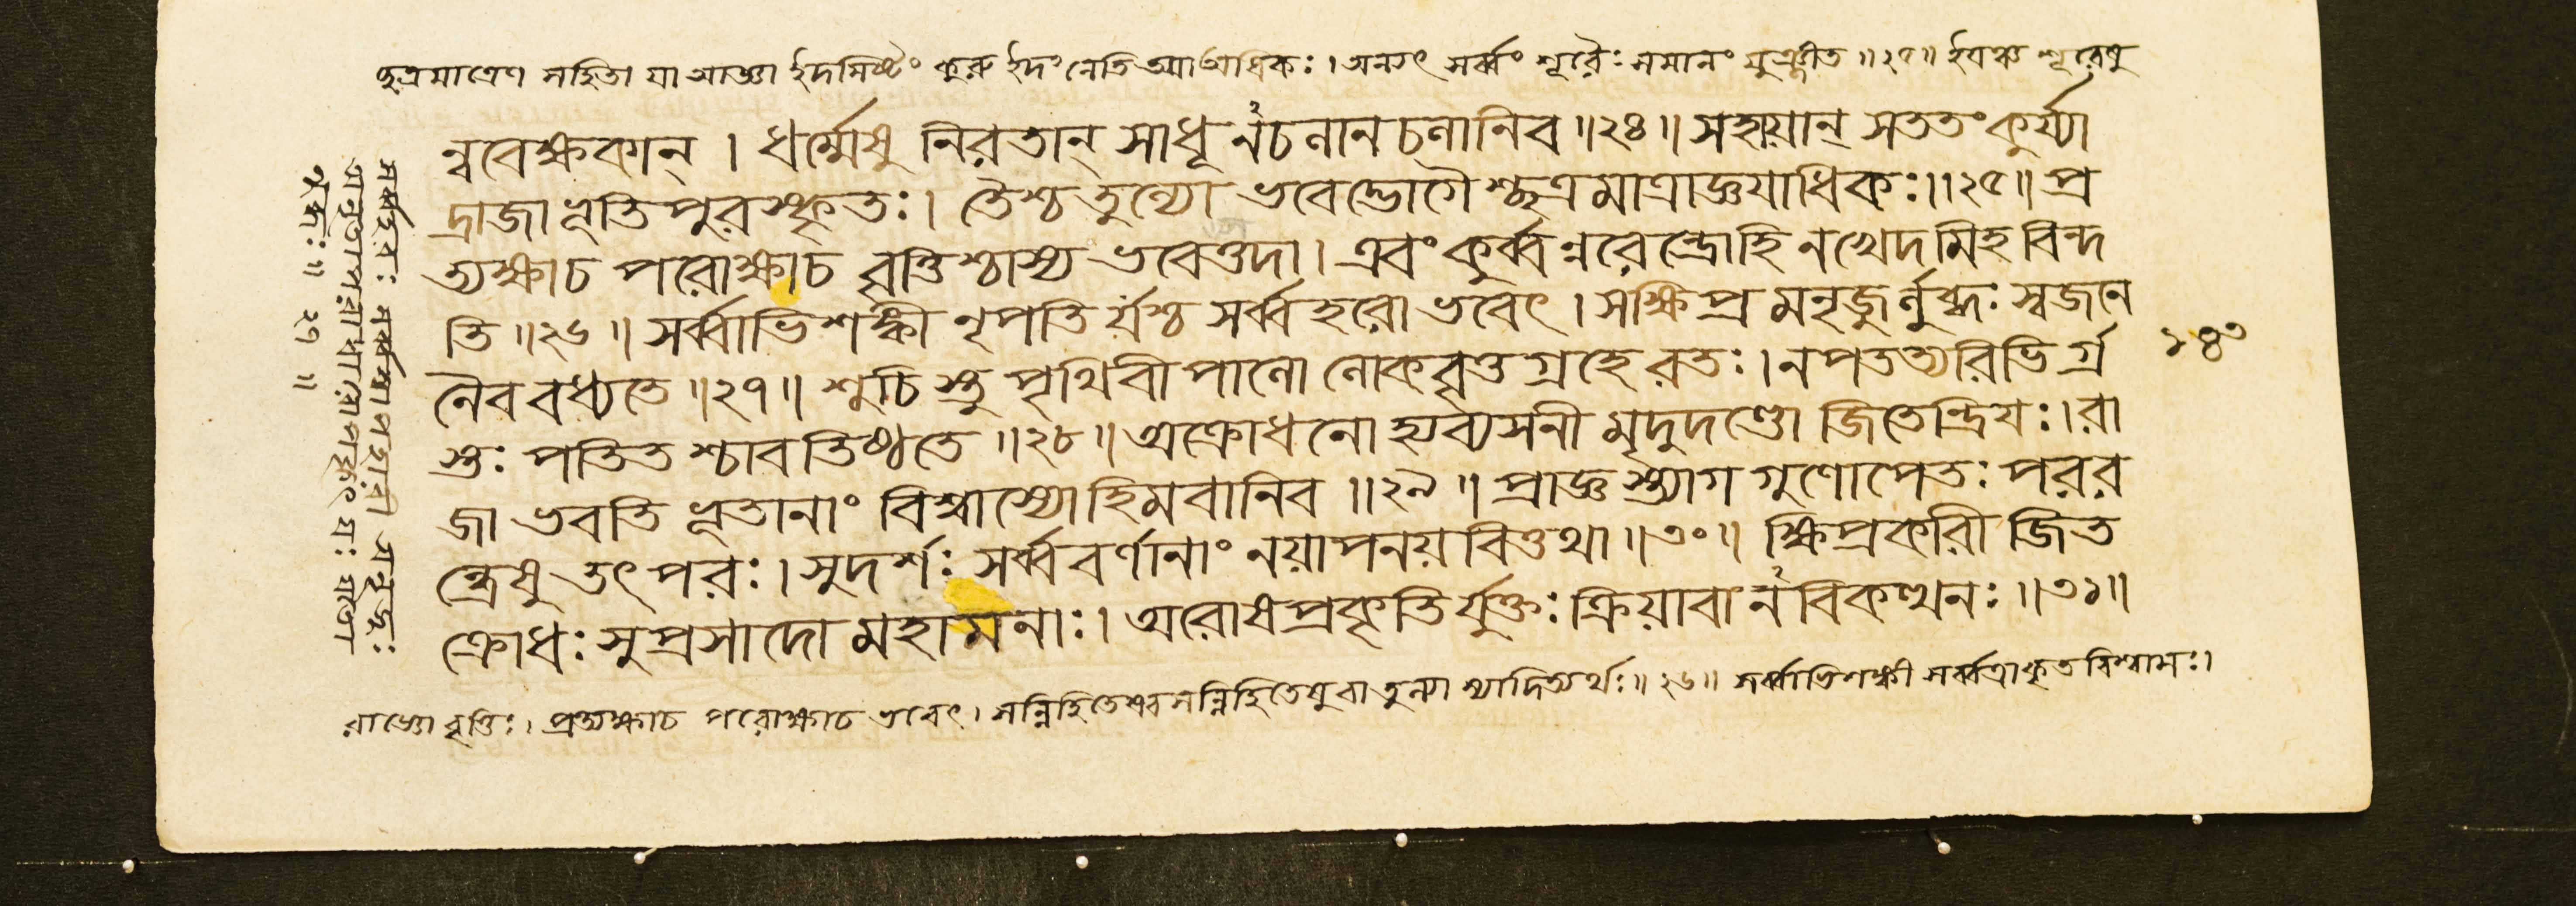 ছত্রমাত্রেণ সহিতা যা আজ্ঞা ইদমিষ্টং কুরু ইদং নেতি আধিকঃ। অন্যৎ সর্ব্বং শূরৈঃ সমানং ভুঞ্জীত ॥২৫॥ শূরেষু
ন্ববেক্ষকান্ । ধর্ম্মেষু নিরতান্ সাধূনচলানচলানিব ॥২৪॥ সহায়ান্ সততং কুর্য্যা
দ্রাজা ভূতিপুরস্কৃতঃ। তৈশ্চ তুল্যো ভবেদ্ভোগৈশ্ছত্রমাত্রাজ্ঞয়াধিকঃ॥২৫॥ প্র
ত্যক্ষাচ পরোক্ষাচ বৃত্তিশ্চাস্য ভবেত্তদা। এবং কুর্ব্বন্নরেন্দ্রোহি নখেদমিহ বিন্দ
তি ॥২৬॥ সর্ব্বাভিশঙ্কী নৃপতির্যশ্চ সর্ব্বহরো ভবেৎ । সক্ষিপ্রমনৃজুর্লুব্ধঃ স্বজনে
নৈব বধ্যতে ॥২৭॥ শুচিস্তু পৃথিবীপালো লোকবৃত্তগ্রহে রতঃ। নপতত্যরিভির্গ্র
স্তঃ পতিতশ্চাবতিষ্ঠতে ॥২৮॥ অক্রোধনো হ্যব্যসনী মৃদুদণ্ডো জিতেন্দ্রিয়ঃ। রা
জা ভবতি ভূতানাং বিশ্বাস্যো হিমবানিব ॥২৯॥ প্রাজ্ঞস্ত্যাগগুণোপেতঃ পরর
ন্ধ্রেষু তৎপরঃ। সুদর্শঃ সর্ব্ববর্ণানাং নয়াপনয়বিত্তথা ॥৩০॥ ক্ষিপ্রকারী জিত
ক্রোধঃ সুপ্রসাদো মহামনাঃ। অরোষপ্রকৃতির্যুক্তঃ ক্রিয়াবানবিকত্থনঃ ॥৩১॥
রাজ্ঞো বৃত্তিঃ। প্রত্যক্ষাচ পরোক্ষাচ ভবেৎ। সন্নিহিতেষ্বসন্নিহিতেষু বা তুল্যা স্যাদিত্যর্থঃ॥২৬॥ সর্ব্বাভিশঙ্কী সর্ব্বত্রাকৃতবিশ্বাসঃ।
সর্ব্বহরঃ সর্ব্বস্বাপহারী
॥ ২৭ ॥
১৪৩